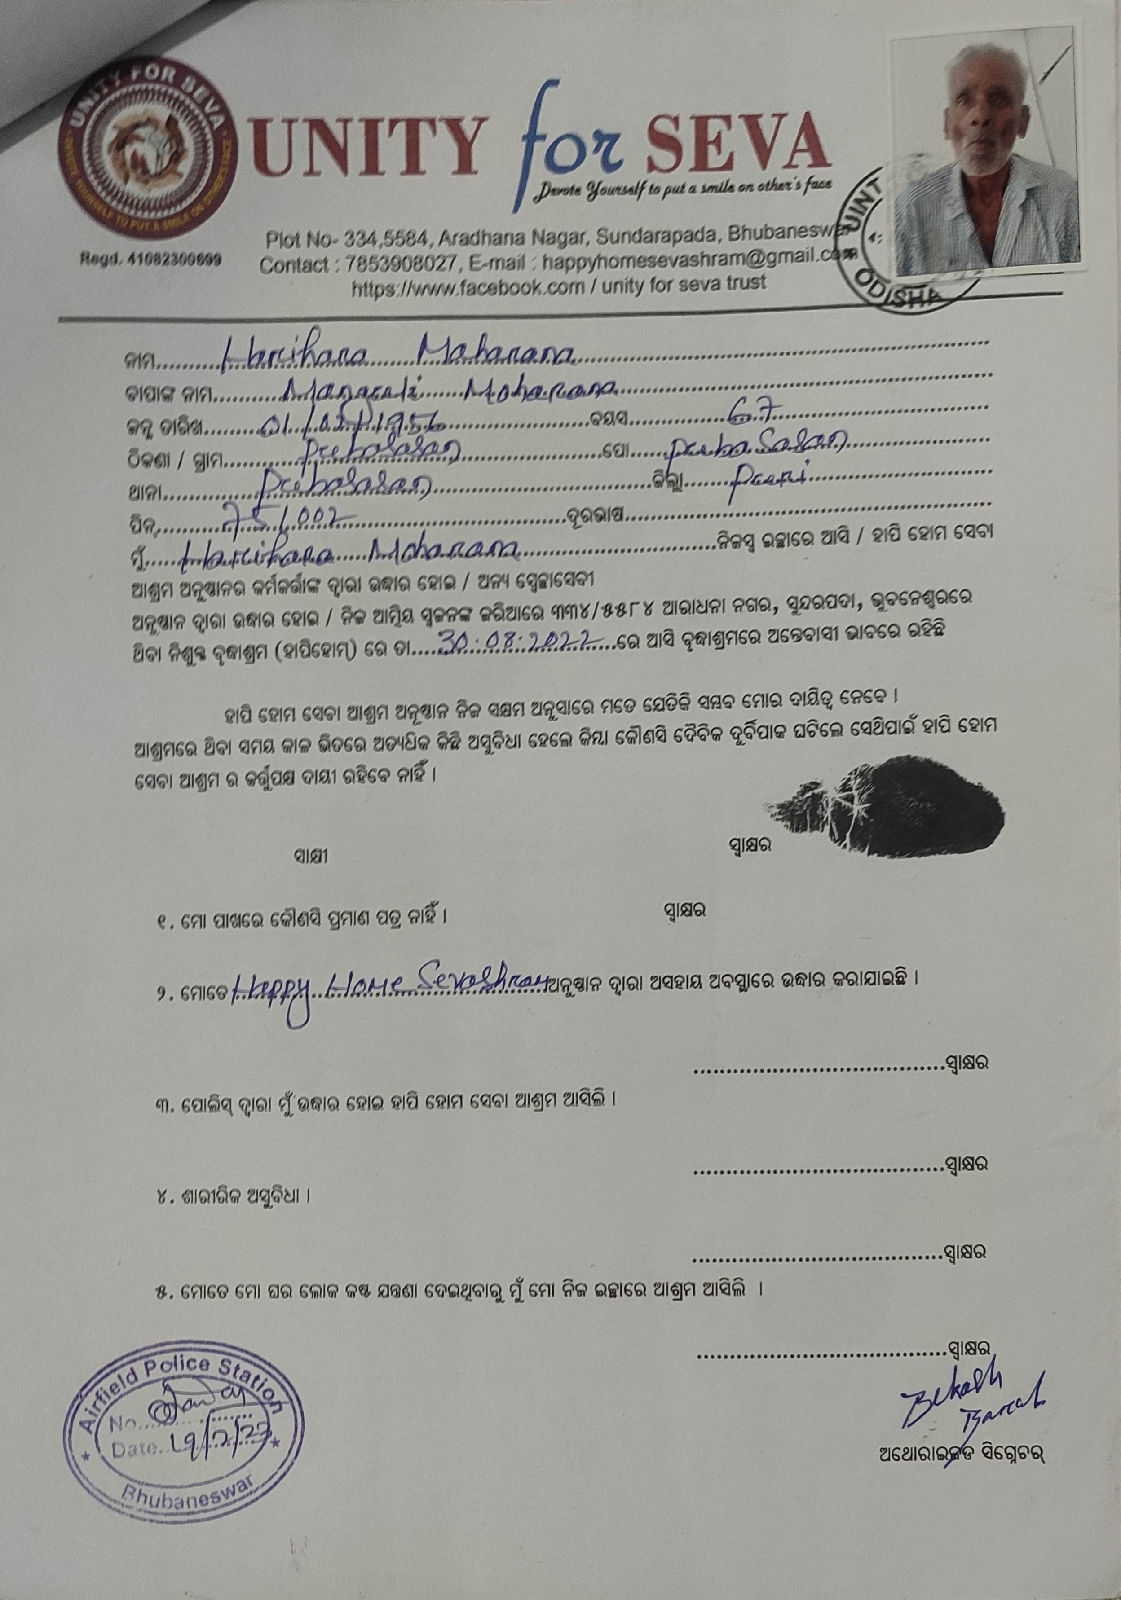 UNITY FOR SEVA
DEVOTE YOURSELF TO PUT A SMILE ON OTHER'S FACE
Regd. 41082300699
UNITY for SEVA
Devote Yourself to put a smile on other's face
Plot No- 334,5584, Aradhana Nagar, Sundarapada, Bhubaneswar
Contact : 7853908027, E-mail : happyhomesevashram@gmail.com
https://www.facebook.com / unity for seva trust
ODISHA
ନାମ........Harihara Maharana
ବାପାଙ୍କ ନାମ........ Moharana
ଜନ୍ମ ତାରିଖ........01/02/1956........ବୟସ........67
ଠିକଣା / ଗ୍ରାମ........Prubasasan........ପୋ........Prubasasan
ଥାନା........Prubasasan........ଜିଲ୍ଲା........Puri
ପିନ୍........751002........ଦୂରଭାଷ........
ମୁଁ........Harihara Moharana........ନିଜସ୍ଵ ଇଚ୍ଛାରେ ଆସି / ହାପି ହୋମ ସେବା
ଆଶ୍ରମ ଅନୁଷ୍ଠାନର କର୍ମକର୍ତ୍ତାଙ୍କ ଦ୍ୱାରା ଉଦ୍ଧାର ହୋଇ / ଅନ୍ୟ ସ୍ୱେଚ୍ଛାସେବୀ
ଅନୁଷ୍ଠାନ ଦ୍ୱାରା ଉଦ୍ଧାର ହୋଇ / ନିଜ ଆତ୍ମିୟ ସ୍ୱଜନଙ୍କ ଜରିଆରେ ୩୩୪/୫୫୮୪ ଆରାଧନା ନଗର, ସୁନ୍ଦରପଦା, ଭୁବନେଶ୍ୱରରେ
ଥିବା ନିଶୁଳ୍କ ବୃଦ୍ଧାଶ୍ରମ (ହାପିହୋମ୍) ରେ ତା....30:08:2022....ରେ ଆସି ବୃଦ୍ଧାଶ୍ରମରେ ଅନ୍ତେବାସୀ ଭାବରେ ରହିଛି
ହାପି ହୋମ ସେବା ଆଶ୍ରମ ଅନୁଷ୍ଠାନ ନିଜ ସକ୍ଷମ ଅନୁସାରେ ମତେ ଯେତିକି ସମ୍ଭବ ମୋର ଦାୟିତ୍ୱ ନେବେ ।
ଆଶ୍ରମରେ ଥିବା ସମୟ କାଳ ଭିତରେ ଅତ୍ୟଧିକ କିଛି ଅସୁବିଧା ହେଲେ କିମ୍ବା କୌଣସି ଦୈବିକ ଦୁର୍ବିପାକ ଘଟିଲେ ସେଥିପାଇଁ ହାପି ହୋମ
ସେବା ଆଶ୍ରମ ର କର୍ତ୍ତୃପକ୍ଷ ଦାୟୀ ରହିବେ ନାହିଁ ।
ସାକ୍ଷୀ ସ୍ୱାକ୍ଷର
୧. ମୋ ପାଖରେ କୌଣସି ପ୍ରମାଣ ପତ୍ର ନାହିଁ । ସ୍ୱାକ୍ଷର
୨. ମୋତେ Happy Home Sevashram ଅନୁଷ୍ଠାନ ଦ୍ୱାରା ଅସହାୟ ଅବସ୍ଥାରେ ଉଦ୍ଧାର କରାଯାଇଛି ।
........ସ୍ୱାକ୍ଷର
୩. ପୋଲିସ୍ ଦ୍ୱାରା ମୁଁ ଉଦ୍ଧାର ହୋଇ ହାପି ହୋମ ସେବା ଆଶ୍ରମ ଆସିଲି ।
........ସ୍ୱାକ୍ଷର
୪. ଶାରୀରିକ ଅସୁବିଧା ।
........ସ୍ୱାକ୍ଷର
୫. ମୋତେ ମୋ ଘର ଲୋକ କଷ୍ଟ ଯନ୍ତ୍ରଣା ଦେଇଥିବାରୁ ମୁଁ ମୋ ନିଜ ଇଚ୍ଛାରେ ଆଶ୍ରମ ଆସିଲି ।
........ସ୍ୱାକ୍ଷର
Airfield Police Station
No........
Date..19/2/23
Bhubaneswar
ଅଥୋରାଇଜଡ ସିଗ୍ନେଚର୍